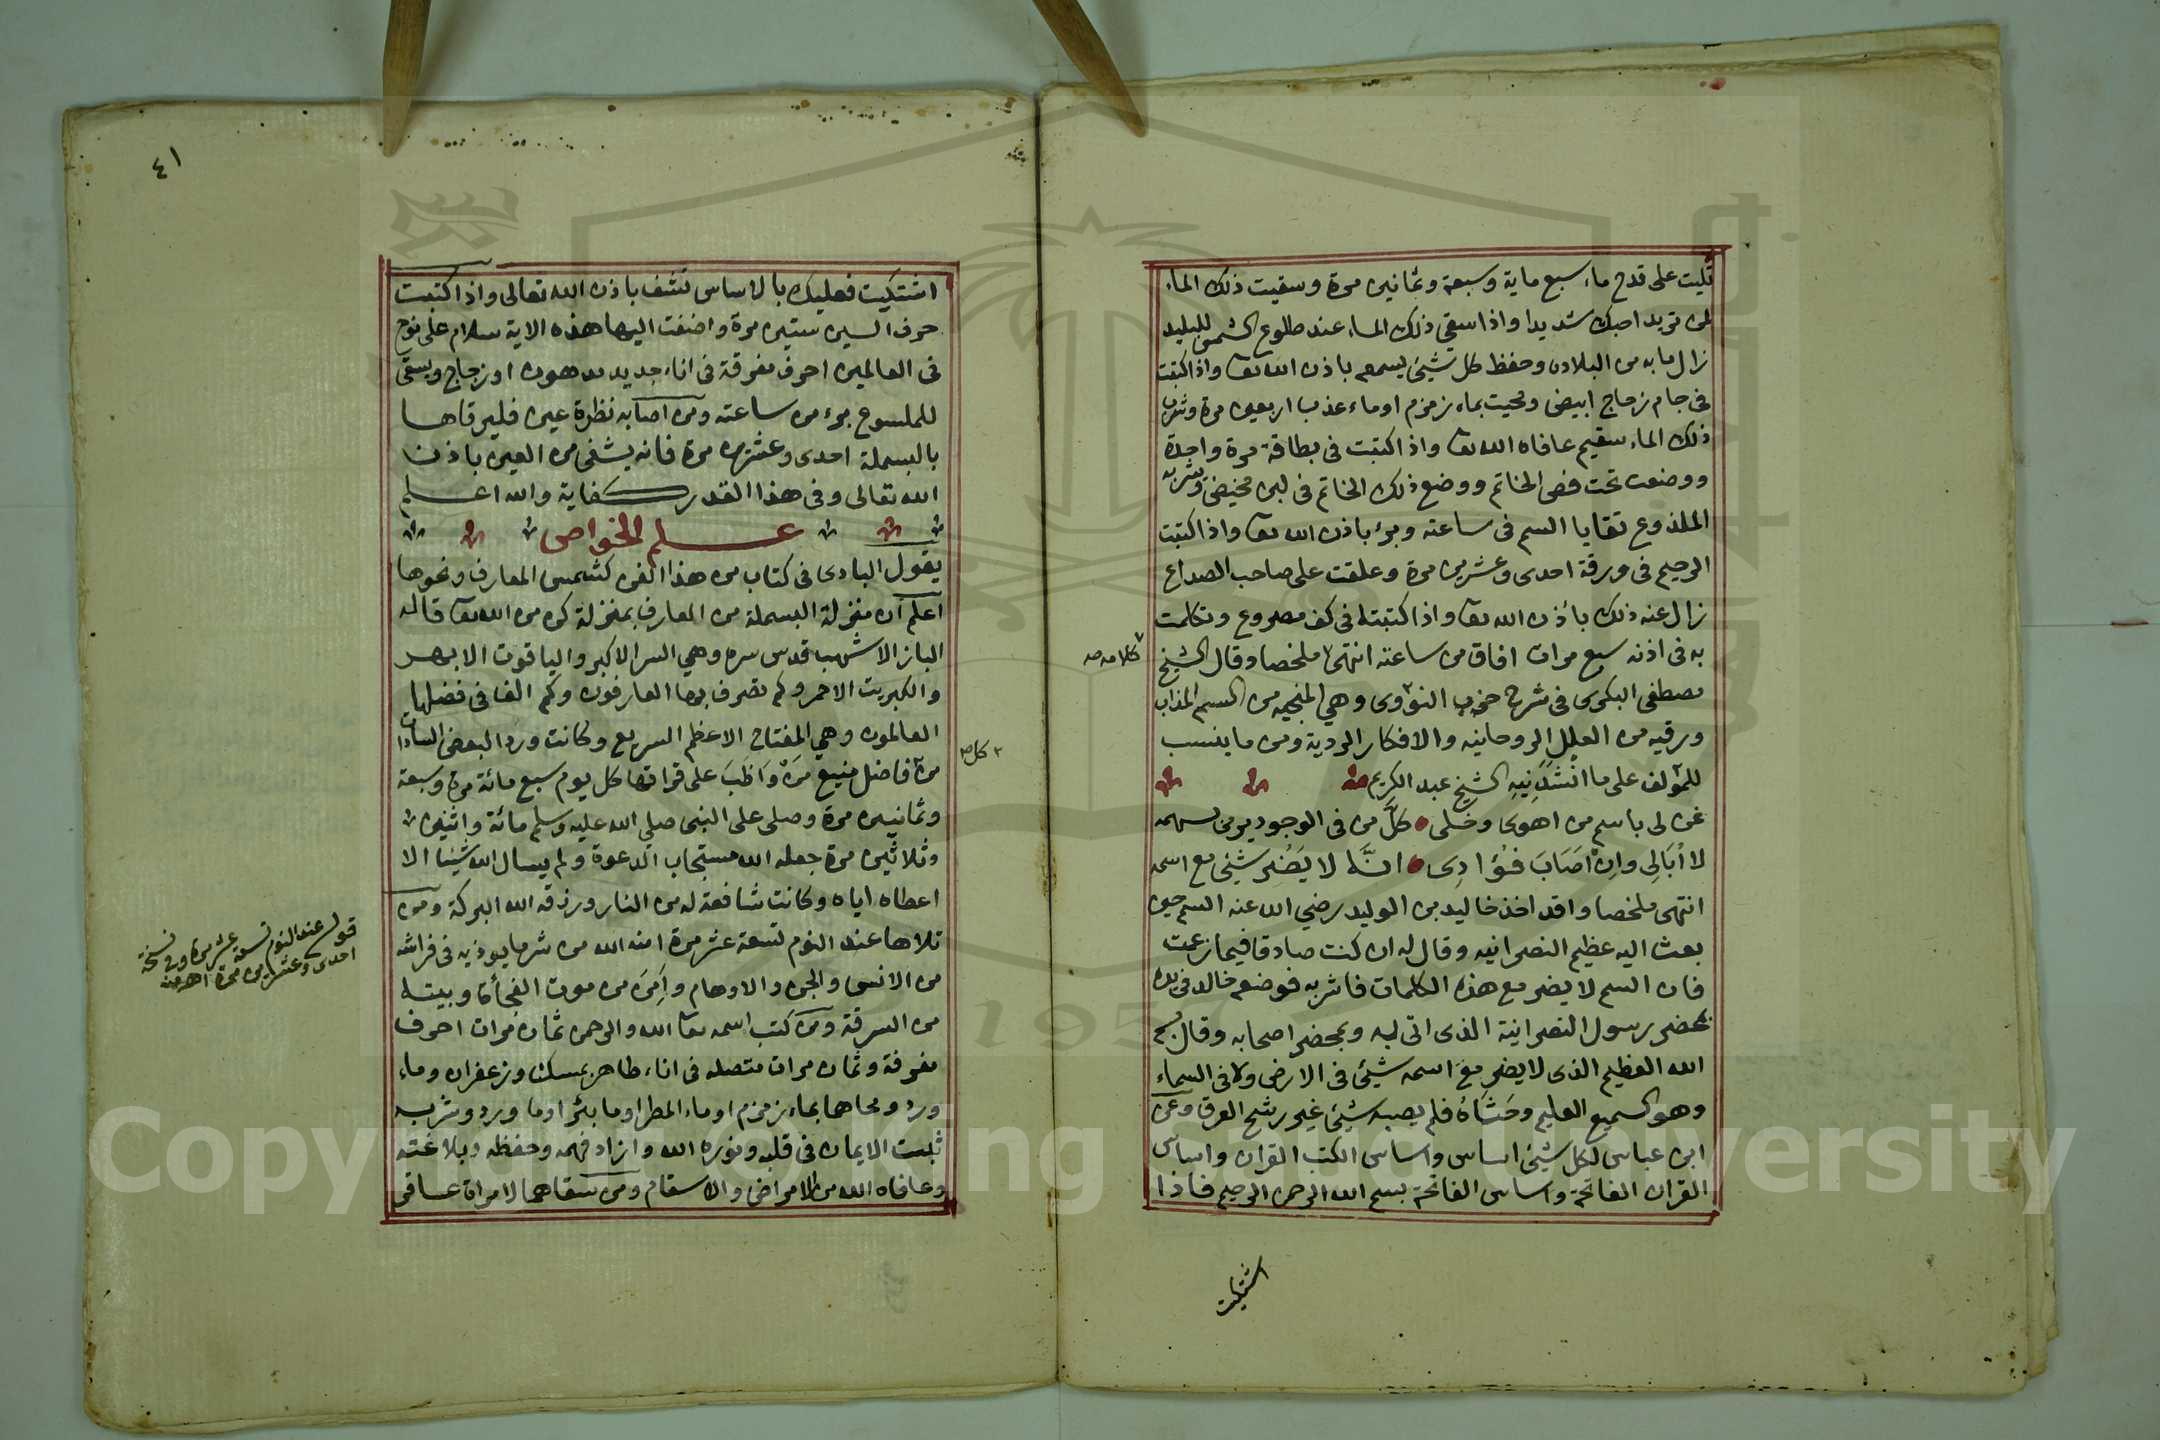 تليت على قدح ماء سبع ماية وسبعة وثمانين مرة وسقيت ذلك الماء
لمن تريد احبك شديدا واذا سقي ذلك الماء عند طلوع الشمس للبليد
زال ما به من البلادة وحفظ كل شيئ يسمعه باذن الله تعا واذا كتبت
في جام زجاج ابيض ومحيت بماء زمزم او ماء عذب اربعين مرة وشرب
ذلك الماء سقيم عافاه الله تعا واذا كتبت في بطاقة مرة واحدة
ووضعت تحت فص الخاتم ووضع ذلك الخاتم في لبن مخيض وشربه
الملذوع تقايا السم في ساعته وبرء باذن الله تعا واذا كتبت
الرحيم في ورقة احدى وعشرين مرة وعلقت على صاحب الصداع
زال عنه ذلك بأذن الله تعا واذا كتبته في كف مصروع وتكلمت
به في اذنه سبع مرات افاق من ساعته انتهى ملخصا وقال الشيخ
كلامه صه
مصطفى البكرى في شرح حزب النووى وهي المنجيه من السم المذاب
ورقيه من العلل الروحانيه والافكار الردية ومن ما ينسب
للمؤلف على ما انْشَدَنِيهِ الشيخ عبد الكريم
غن لى باسم من اهوى وخلى كلُّ من في الوجود يرمى بسهمه
لا اُبَالِى وان اَصَابَ فُؤَادِى انَّه لا يَضُر شيئ مع اسمه
انتهى ملخصا واقد اخذ خاليد بن الوليد رضي الله عنه السم حين
بعث اليه عظيم النصرانيه وقال له ان كنت صادقا فيما زعمت
فان السم لا يضر مع هذه الكلمات فاشربه فوضعه خالد في يده
بحضر رسول النصرانية الذى اتى ليه وبمحضر اصحابه وقال بسم
الله العظيم الذى لا يضر مع اسمه شيئ في الارض ولا في السماء
وهو السميع العليم وحَشَاهُ فلم يصبه شيئ غير رشح العرق وعن
ابن عباس لكل شيئ اساس واساس الكتب القران واساس
القران الفاتحة واساس الفاتحة بسم الله الرحمن الرحيم فاذا
اشتكيت
٤١
اشتكيت فعليك بالاساس تشف باذن الله تعالى واذا كتبت
حرف السين ستين مرة واضفت اليها هذه الاية سلام على نوح
في العالمين احرف مفرقة في اناء جديد مدهون او زجاج ويسقى
للملسوع برء من ساعته ومن اصابه نظرة عين فليرقاها
بالبسملة احدى وعشرين مرة فانه يشفى من العين باذن
الله تعالى وفي هذا القدر كفاية والله اعلم
علم الخواص
يقول البادى في كتاب من هذا الفن كشمس المعارف ونحوها
اعلم ان منزلة البسملة من المعارف بمنزلة كن من الله تعا قاله
الباز الاشهب قدس سره وهي السر الاكبر والياقوت الابهر
والكبريت الاحمر وكم تصرف بها العارفون وكم الفا في فضلها
العالمون وهي المفتاح الاعظم السريع وكانت ورد البعض السادات
٢ كل ٣
من فاضل منيع مَنْ وَاظَبَ على قراتها كل يوم سبع مائة مرة وسبعة
وثمانيين مرة وصلى على النبى صلى الله عليه وسلم مائة واثنين
وثلاثين مرة جعله الله مستجاب الدعوة ولم يسال الله شيئا الا
اعطاه اياه وكانت شافعة له من النار ورزقه الله البركة ومن
تلاها عند النوم تسعة عشر مرة امنه الله من شر ما يوذيه في فراشه
قوله عند النوم تسعة عشر مرة وفي نسخة
احدى وعشرين مرة اهـ منه
من الانس والجن والاوهام وأمن من موت الفجأة وبيته
من السرقة ومن كتب اسمه تعا الله والرحمن ثمان مرات احرف
مفرقة وثمان مرات متصله في اناء طاهر بمسك وزعفران وماء
ورد ومحاها بماء زمزم او ماء المطر او ما بئر او ما ورد وشربه
ثبت الايمان في قلبه ونوره الله وازاد فهمه وحفظه وبلاغته
وعافاه الله من الامراض والاسقام ومن سقاهما لامراة عاقر
Copy King University
195